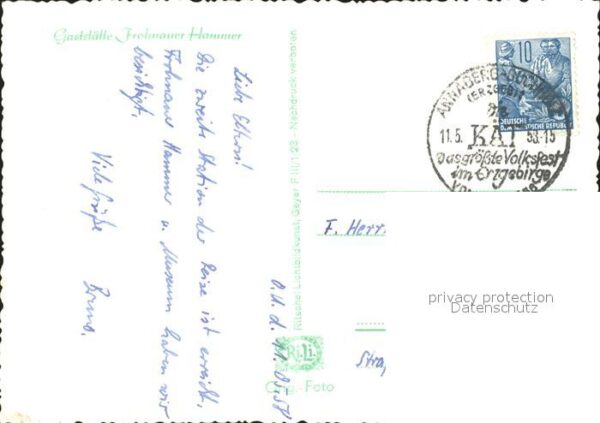 Gaststätte Frohnauer Hammer
O.U. d. 11.05.58
Liebe Eltern!
Die zweite Station der Reise ist erreicht.
Frohnauer Hammer u. Museum haben wir
besichtigt.
Viele Grüße
Ritscher Lichtbildkunst, Geyer F III/1 23 Nachdruck verboten
Ri.Li.
Foto
10
DEUTSCHE
DEMOKRATISCHE REPUBLIK
ANNABERG-BUCHHOLZ
(ERZGEB)
KÄT
11.5. 58-15
Das größte Volksfest
im Erzgebirge
F. Herr.
privacy protection
Datenschutz